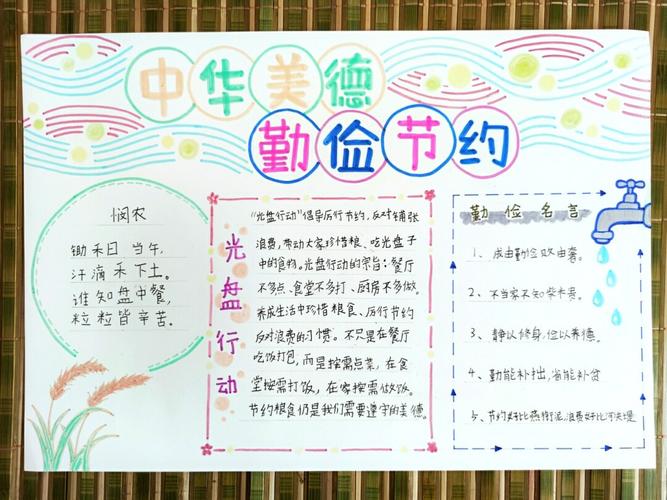 中华美德
勤俭节约
悯农
锄禾日当午,
汗滴禾下土。
谁知盘中餐,
粒粒皆辛苦。
光盘行动
"光盘行动"倡导厉行节约,反对铺张
浪费,带动大家珍惜粮、吃光盘子
中的食物。光盘行动的宗旨:餐厅
不多点、食堂不多打、厨房不多做。
养成生活中珍惜粮食、厉行节约
反对浪费的习惯。不只是在餐厅
吃饭打包,而是按需点菜,在食
堂按需打饭,在家按需做饭。
节约粮食仍是我们需要遵守的美德。
勤俭名言
1、成由勤俭败由奢。
2、不当家不知柴米贵。
3、静以修身,俭以养德。
4、勤能补拙,省能补贫
5、节约好比燕衔泥,浪费好比河决堤